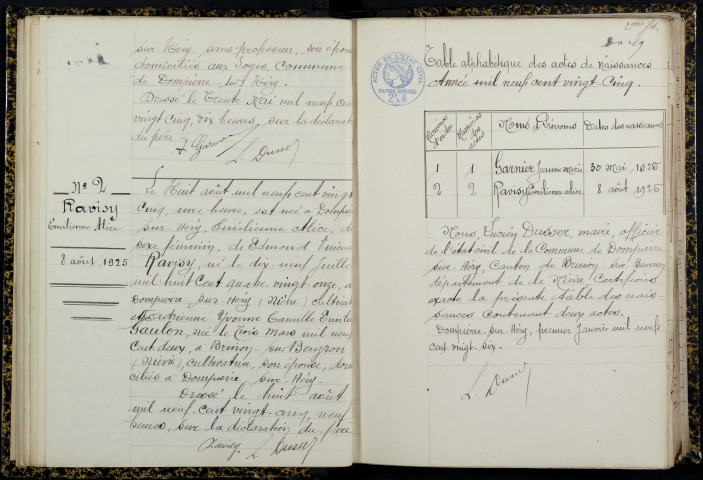 sur Héry, sans profession, son épouse
domiciliés aux Loges, Commune
de Dompierre sur Héry.
Dressé le trente Mai mil neuf cent
vingt cinq, dix heures, sur la déclaration
du père. J. Garnier
L. Dusser
No 2
Ravisy
Emilienne Alice
8 août 1925
Le huit août mil neuf cent vingt
cinq, une heure, est née à Dompierre
sur-Héry, Emilienne Alice, de
sexe féminin, de Edmond
Ravisy, né le dix neuf Juillet
mil huit cent quatre vingt-onze, à
Dompierre sur-Héry (Nièvre) cultivateur
et Adrienne Yvonne Camille
Gaulon, née le trois Mars mil neuf
cent deux, à Brinon-sur-Beuvron
(Nièvre), cultivatrice, son épouse, domi
ciliés à Dompierre sur-Héry
Dressé le huit août
mil neuf cent vingt-cinq, neuf
heures, sur la déclaration du père
Ravisy L. Dusser
ACTES DE L'ETAT CIVIL
PAPIER SPECIAL
Table alphabétique des actes de Naissances
Année mil neuf cent vingt Cinq.
Numéros d'ordre Numéros des actes Noms & Prénoms Dates des naissances
1 1 Garnier Jeanne Marie 30 mai 1925
2 2 Ravisy Emilienne Alice 8 août 1925
Nous, Lucien Dusser, maire, officier
de l'état civil de la Commune de Dompierre
sur-Héry, Canton de Brinon sur Beuvron
département de la Nièvre Certifions
exacte la présente table des nais-
sances contenant deux actes.
Dompierre-sur-Héry, premier Janvier mil neuf
cent vingt-six.
L. Dusser